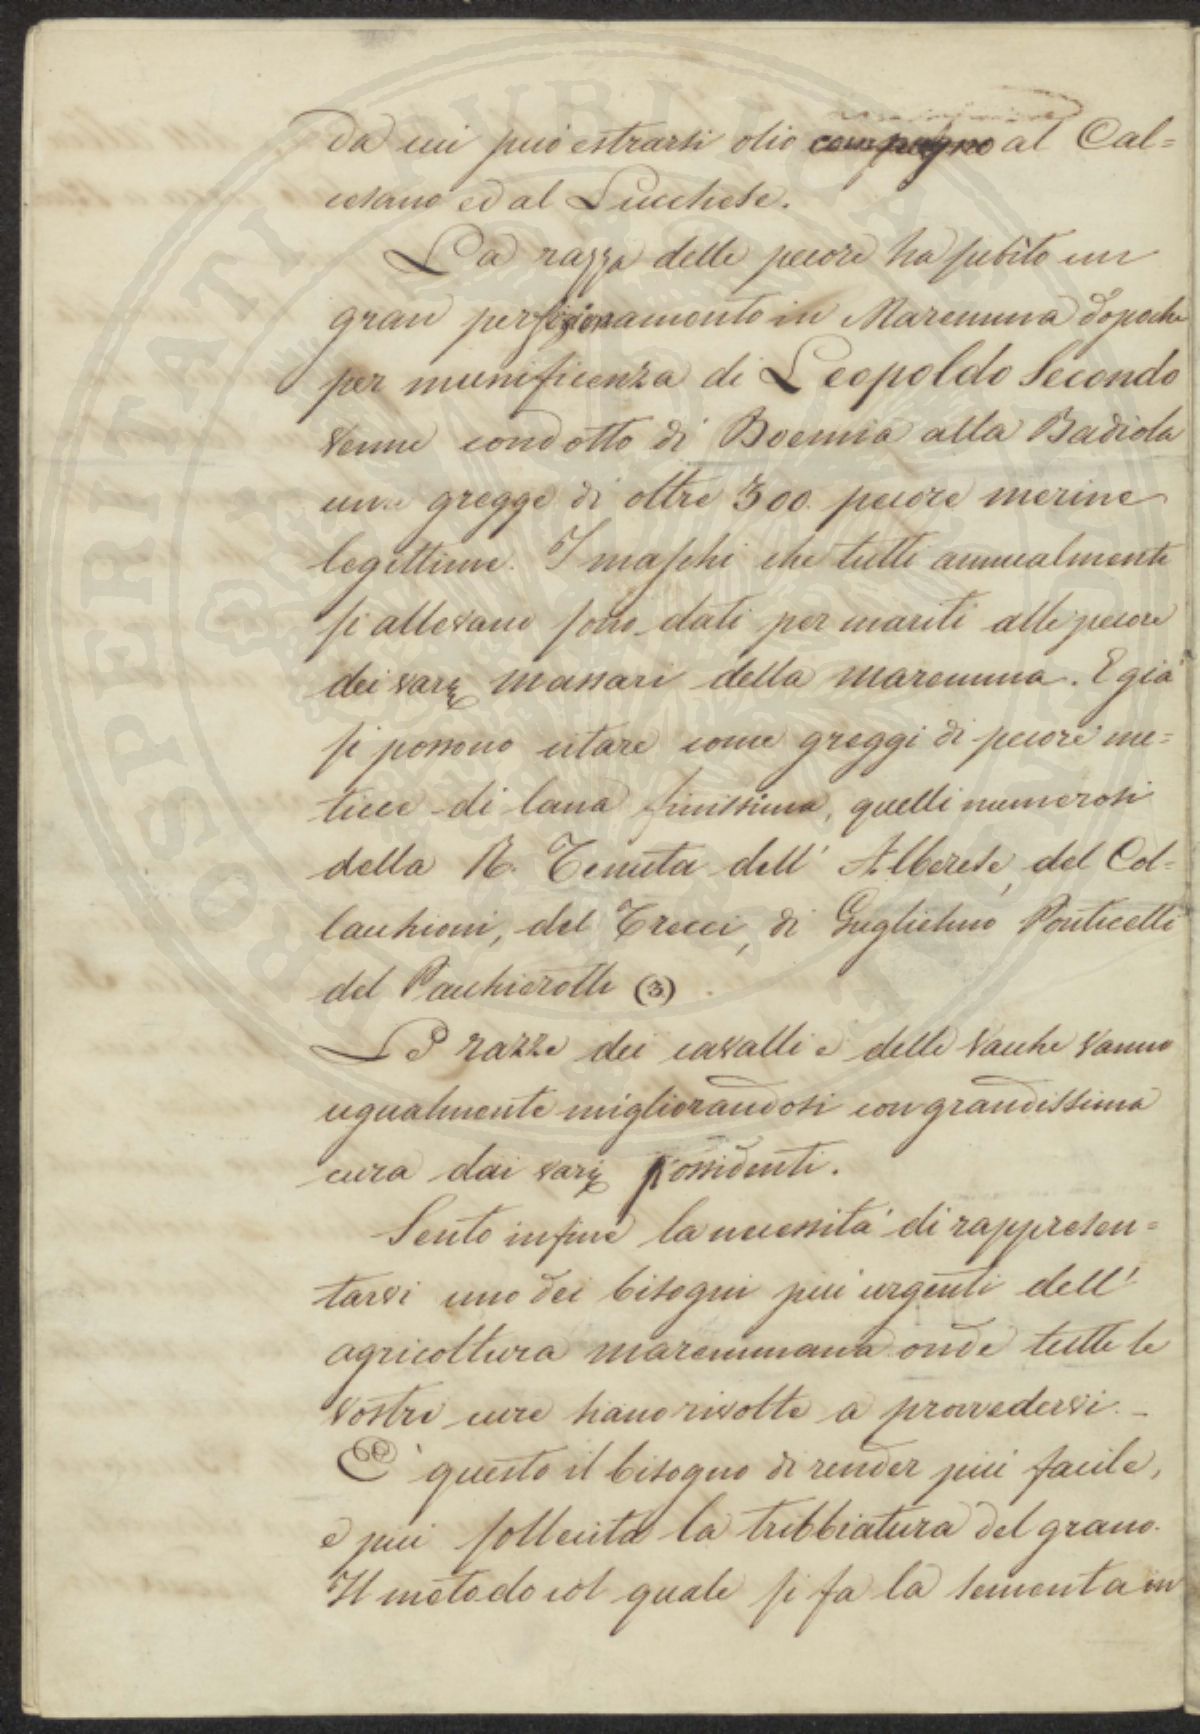 da cui può estrarsi olio compagno al Cal=
cesano ed al Lucchese.
La razza delle pecore ha subito un
gran perfezionamento in Maremma dopoche
per munificenza di Leopoldo Secondo
venne condotto di Boemia alla Badiola
un gregge di oltre 300. pecore merine
legittime. I maschi che tutti annualmente
si allevano sono dati per mariti alle pecore
dei varj massari della maremma. E già
si possono citare come greggi di pecore me=
ticce di lana finissima, quelli numerosi
della R. Tenuta dell' Alberese, del Col=
lacchioni, del Trecci, di Guglielmo Ponticelli
del Pacchierotti (3)
Le razze dei cavalli e delle vacche vanno
ugualmente migliorandosi con grandissima
cura dai varj possidenti.
Sento infine la necessità di rappresen=
tarvi uno dei bisogni più urgenti dell'
agricoltura maremmana onde tutte le
vostre cure siano rivolte a provvedervi. -
E' questo il bisogno di render più facile,
e più sollecita la tribbiatura del grano.
Il metodo col quale si fa la sementa in
PROSPERITATI PUBLICAE